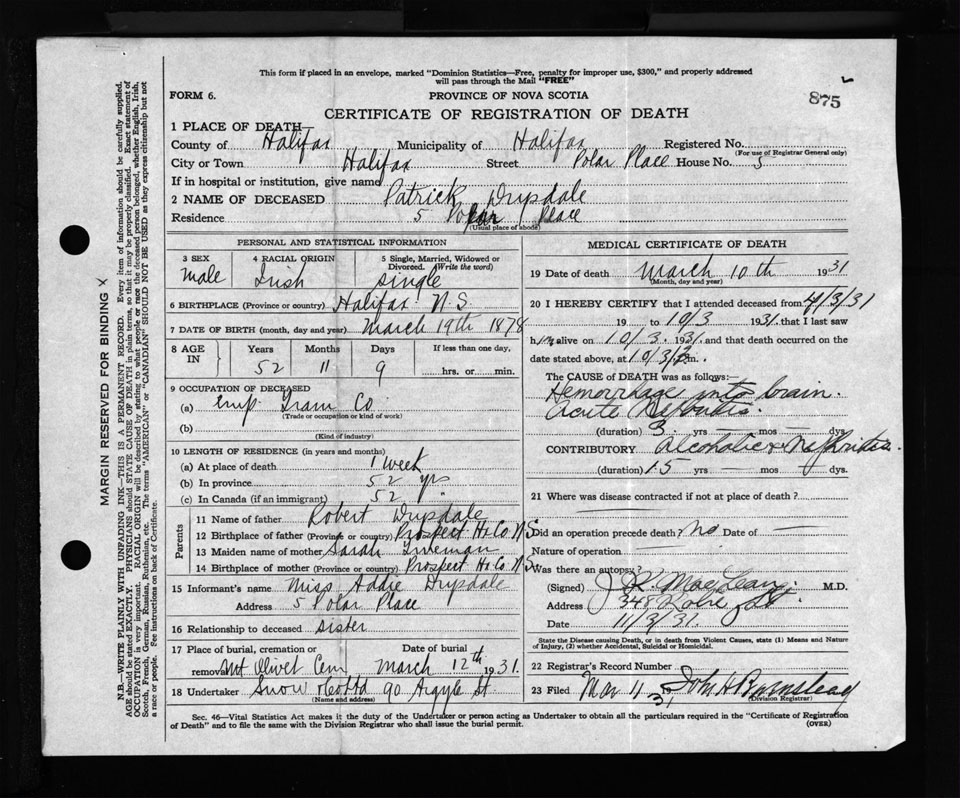 This form if placed in an envelope, marked "Dominion Statistics—Free, penalty for improper use, $300," and properly addressed
will pass through the Mail "FREE"
FORM 6.
PROVINCE OF NOVA SCOTIA
875
CERTIFICATE OF REGISTRATION OF DEATH
1 PLACE OF DEATH—
County of Halifax Municipality of Halifax Registered No.
(For use of Registrar General only)
City or Town Halifax Street Polar Place House No. 5
If in hospital or institution, give name
2 NAME OF DECEASED Patrick Drysdale
Residence 5 Polar Place
(Usual place of abode)
PERSONAL AND STATISTICAL INFORMATION
3 SEX 4 RACIAL ORIGIN 5 Single, Married, Widowed or
Divorced. (Write the word)
male Irish single
6 BIRTHPLACE (Province or country) Halifax N.S.
7 DATE OF BIRTH (month, day and year) March 19th 1878
8 AGE IN Years Months Days If less than one day,
52 11 9 hrs. or min.
9 OCCUPATION OF DECEASED
(a) Emp Tram Co
(Trade or occupation or kind of work)
(b)
(Kind of industry)
10 LENGTH OF RESIDENCE (in years and months)
(a) At place of death 1 week
(b) In province 52 yrs
(c) In Canada (if an immigrant) 52 "
Parents
11 Name of father Robert Drysdale
12 Birthplace of father (Province or country) Prospect Hx Co N S
13 Maiden name of mother Sarah
14 Birthplace of mother (Province or country) Prospect Hx Co N S
15 Informant's name Miss Addie Drysdale
Address 5 Polar Place
16 Relationship to deceased sister
17 Place of burial, cremation or Date of burial
removal Mt Olivet Cem March 12th 1931.
18 Undertaker Snow & Co Ltd 90 Argyle St.
(Name and address)
MEDICAL CERTIFICATE OF DEATH
19 Date of death March 10th 1931
(Month, day and year)
20 I HEREBY CERTIFY that I attended deceased from 4/3/31
19 to 10/3 1931. that I last saw
him alive on 10/3. 1931. and that death occurred on the
date stated above, at m.
The CAUSE of DEATH was as follows:—
Hemorrhage into brain.
Acute Nephritis.
(duration) 3 yrs mos dys.
CONTRIBUTORY Alcoholic & Nephritis.
(duration) 15 yrs — mos — dys.
21 Where was disease contracted if not at place of death?
Did an operation precede death? No Date of —
Nature of operation —
Was there an autopsy?
(Signed) J K MacLean. M.D.
Address 345 St.
Date 11/3/31.
State the Disease causing Death, or in death from Violent Causes, state (1) Means and Nature
of Injury, (2) whether Accidental, Suicidal or Homicidal.
22 Registrar's Record Number
23 Filed Mar 11 1931 John H Barnstead
(Division Registrar)
Sec. 46—Vital Statistics Act makes it the duty of the Undertaker or person acting as Undertaker to obtain all the particulars required in the "Certificate of Registration
of Death" and to file the same with the Division Registrar who shall issue the burial permit.
(OVER)
MARGIN RESERVED FOR BINDING X
N.B.—WRITE PLAINLY WITH UNFADING INK—THIS IS A PERMANENT RECORD. Every item of information should be carefully supplied.
AGE should be stated EXACTLY. PHYSICIANS should STATE CAUSE OF DEATH in plain terms, so that it may be properly classified. Exact statement of
OCCUPATION is very important. RACIAL ORIGIN will be described by stating to what people or race the deceased person belonged, whether English, Irish,
Scotch, French, German, Russian, Ruthenian, etc. The terms "AMERICAN" or "CANADIAN" SHOULD NOT BE USED as they express citizenship but not
a race or people. See instructions on back of Certificate.